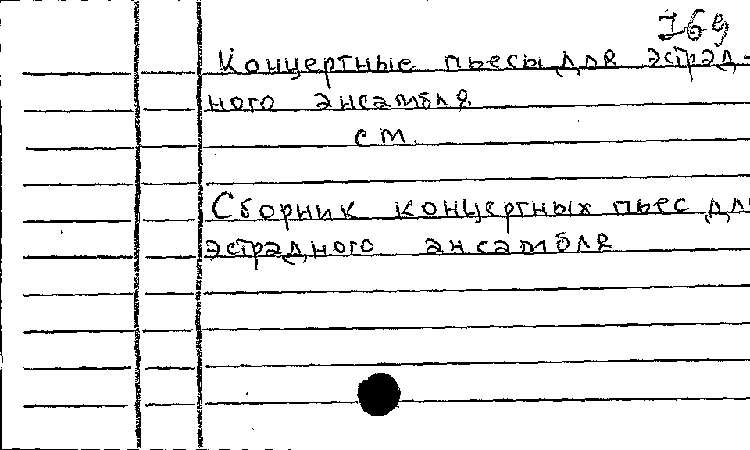 169
Концертные пьесы для эстрад-
ного ансамбля
см.
Сборник концертных пьес для
эстрадного ансамбля